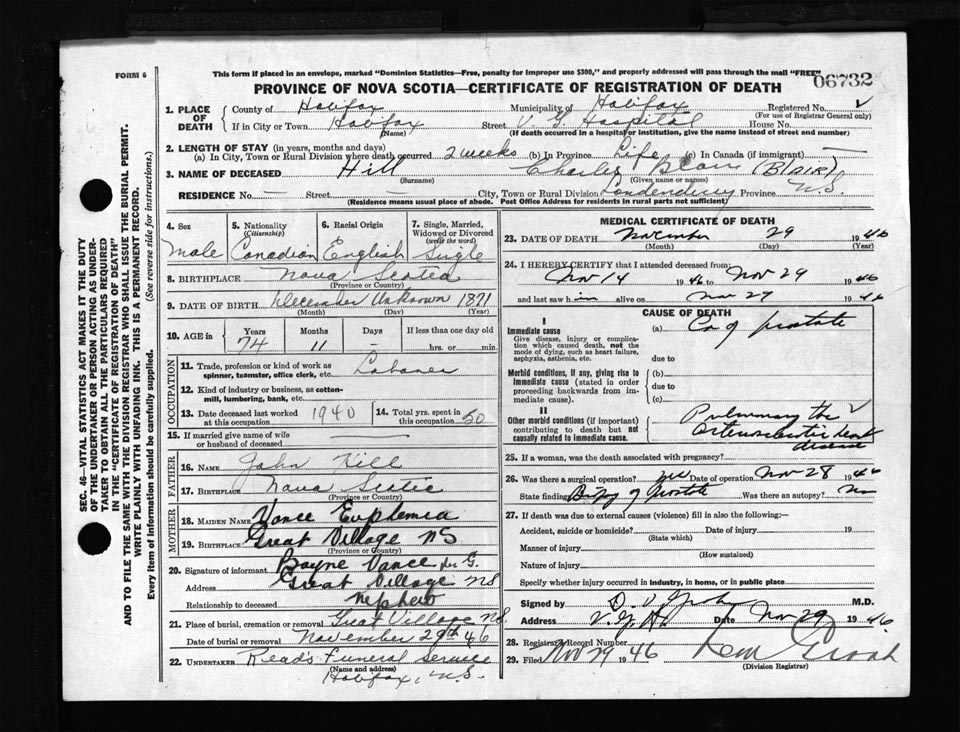 FORM 6
This form if placed in an envelope, marked "Dominion Statistics—Free, penalty for improper use $300," and properly addressed will pass through the mail "FREE"
06732
PROVINCE OF NOVA SCOTIA—CERTIFICATE OF REGISTRATION OF DEATH
1. PLACE OF DEATH County of Halifax Municipality of Halifax Registered No.
(For use of Registrar General only)
If in City or Town Halifax Street V. G. Hospital House No.
(Name) (If death occurred in a hospital or institution, give the name instead of street and number)
2. LENGTH OF STAY (in years, months and days)
(a) In City, Town or Rural Division where death occurred 2 weeks (b) In Province Life (c) In Canada (if immigrant) —
3. NAME OF DECEASED Hill Charles (BLAIR)
(Surname) (Given name or names)
RESIDENCE No. — Street City, Town or Rural Division Londonderry Province N.S.
(Residence means usual place of abode. Post Office Address for residents in rural parts not sufficient)
SEC. 46—VITAL STATISTICS ACT MAKES IT THE DUTY
OF THE UNDERTAKER OR PERSON ACTING AS UNDER-
TAKER TO OBTAIN ALL THE PARTICULARS REQUIRED
IN THE "CERTIFICATE OF REGISTRATION OF DEATH"
AND TO FILE THE SAME WITH THE DIVISION REGISTRAR WHO SHALL ISSUE THE BURIAL PERMIT.
WRITE PLAINLY WITH UNFADING INK. THIS IS A PERMANENT RECORD.
Every item of information should be carefully supplied. (See reverse side for instructions.)
4. Sex 5. Nationality (Citizenship) 6. Racial Origin 7. Single, Married, Widowed or Divorced (write the word)
Male Canadian English Single
8. BIRTHPLACE Nova Scotia
(Province or Country)
9. DATE OF BIRTH December Unknown 1871
(Month) (Day) (Year)
10. AGE in Years Months Days If less than one day old
74 11 – hrs. or min.
OCCUPATION
11. Trade, profession or kind of work as spinner, teamster, office clerk, etc. Laborer
12. Kind of industry or business, as cotton-mill, lumbering, bank, etc.
13. Date deceased last worked at this occupation 1940 14. Total yrs. spent in 50
15. If married give name of wife or husband of deceased
FATHER
16. NAME John Hill
17. BIRTHPLACE Nova Scotia
(Province or Country)
MOTHER
18. MAIDEN NAME Vance Euphemia
19. BIRTHPLACE Great Village NS
(Province or Country)
20. Signature of informant Bayne Vance per G.
Address Great Village NS
Relationship to deceased Nephew
21. Place of burial, cremation or removal Great Village N.S.
Date of burial or removal November 29th 46
22. UNDERTAKER Read's Funeral Service
(Name and address)
Halifax, N.S.
MEDICAL CERTIFICATE OF DEATH
23. DATE OF DEATH November 29 1946
(Month) (Day) (Year)
24. I HEREBY CERTIFY that I attended deceased from:
Nov 14 1946 to Nov 29 1946
and last saw him alive on Nov 29 1946
CAUSE OF DEATH
I
Immediate cause (a) Ca of prostate
Give disease, injury or complication which caused death, not the mode of dying, such as heart failure, asphyxia, asthenia, etc. due to
Morbid conditions, if any, giving rise to immediate cause (stated in order proceeding backwards from immediate cause). (b)
due to
(c)
II
Other morbid conditions (if important) contributing to death but not causally related to immediate cause. Pulmonary tbc
Arteriosclerotic heart disease
25. If a woman, was the death associated with pregnancy?
26. Was there a surgical operation? yes Date of operation Nov 28 1946
State finding Biopsy of Prostate Was there an autopsy? No
27. If death was due to external causes (violence) fill in also the following:—
Accident, suicide or homicide? Date of injury 19
(State which)
Manner of injury
(How sustained)
Nature of injury
Specify whether injury occurred in industry, in home, or in public place
Signed by M.D.
Address V. G. H. Date Nov 29 1946.
28. Registrar's Record Number
29. Filed Nov 29 1946
(Division Registrar)